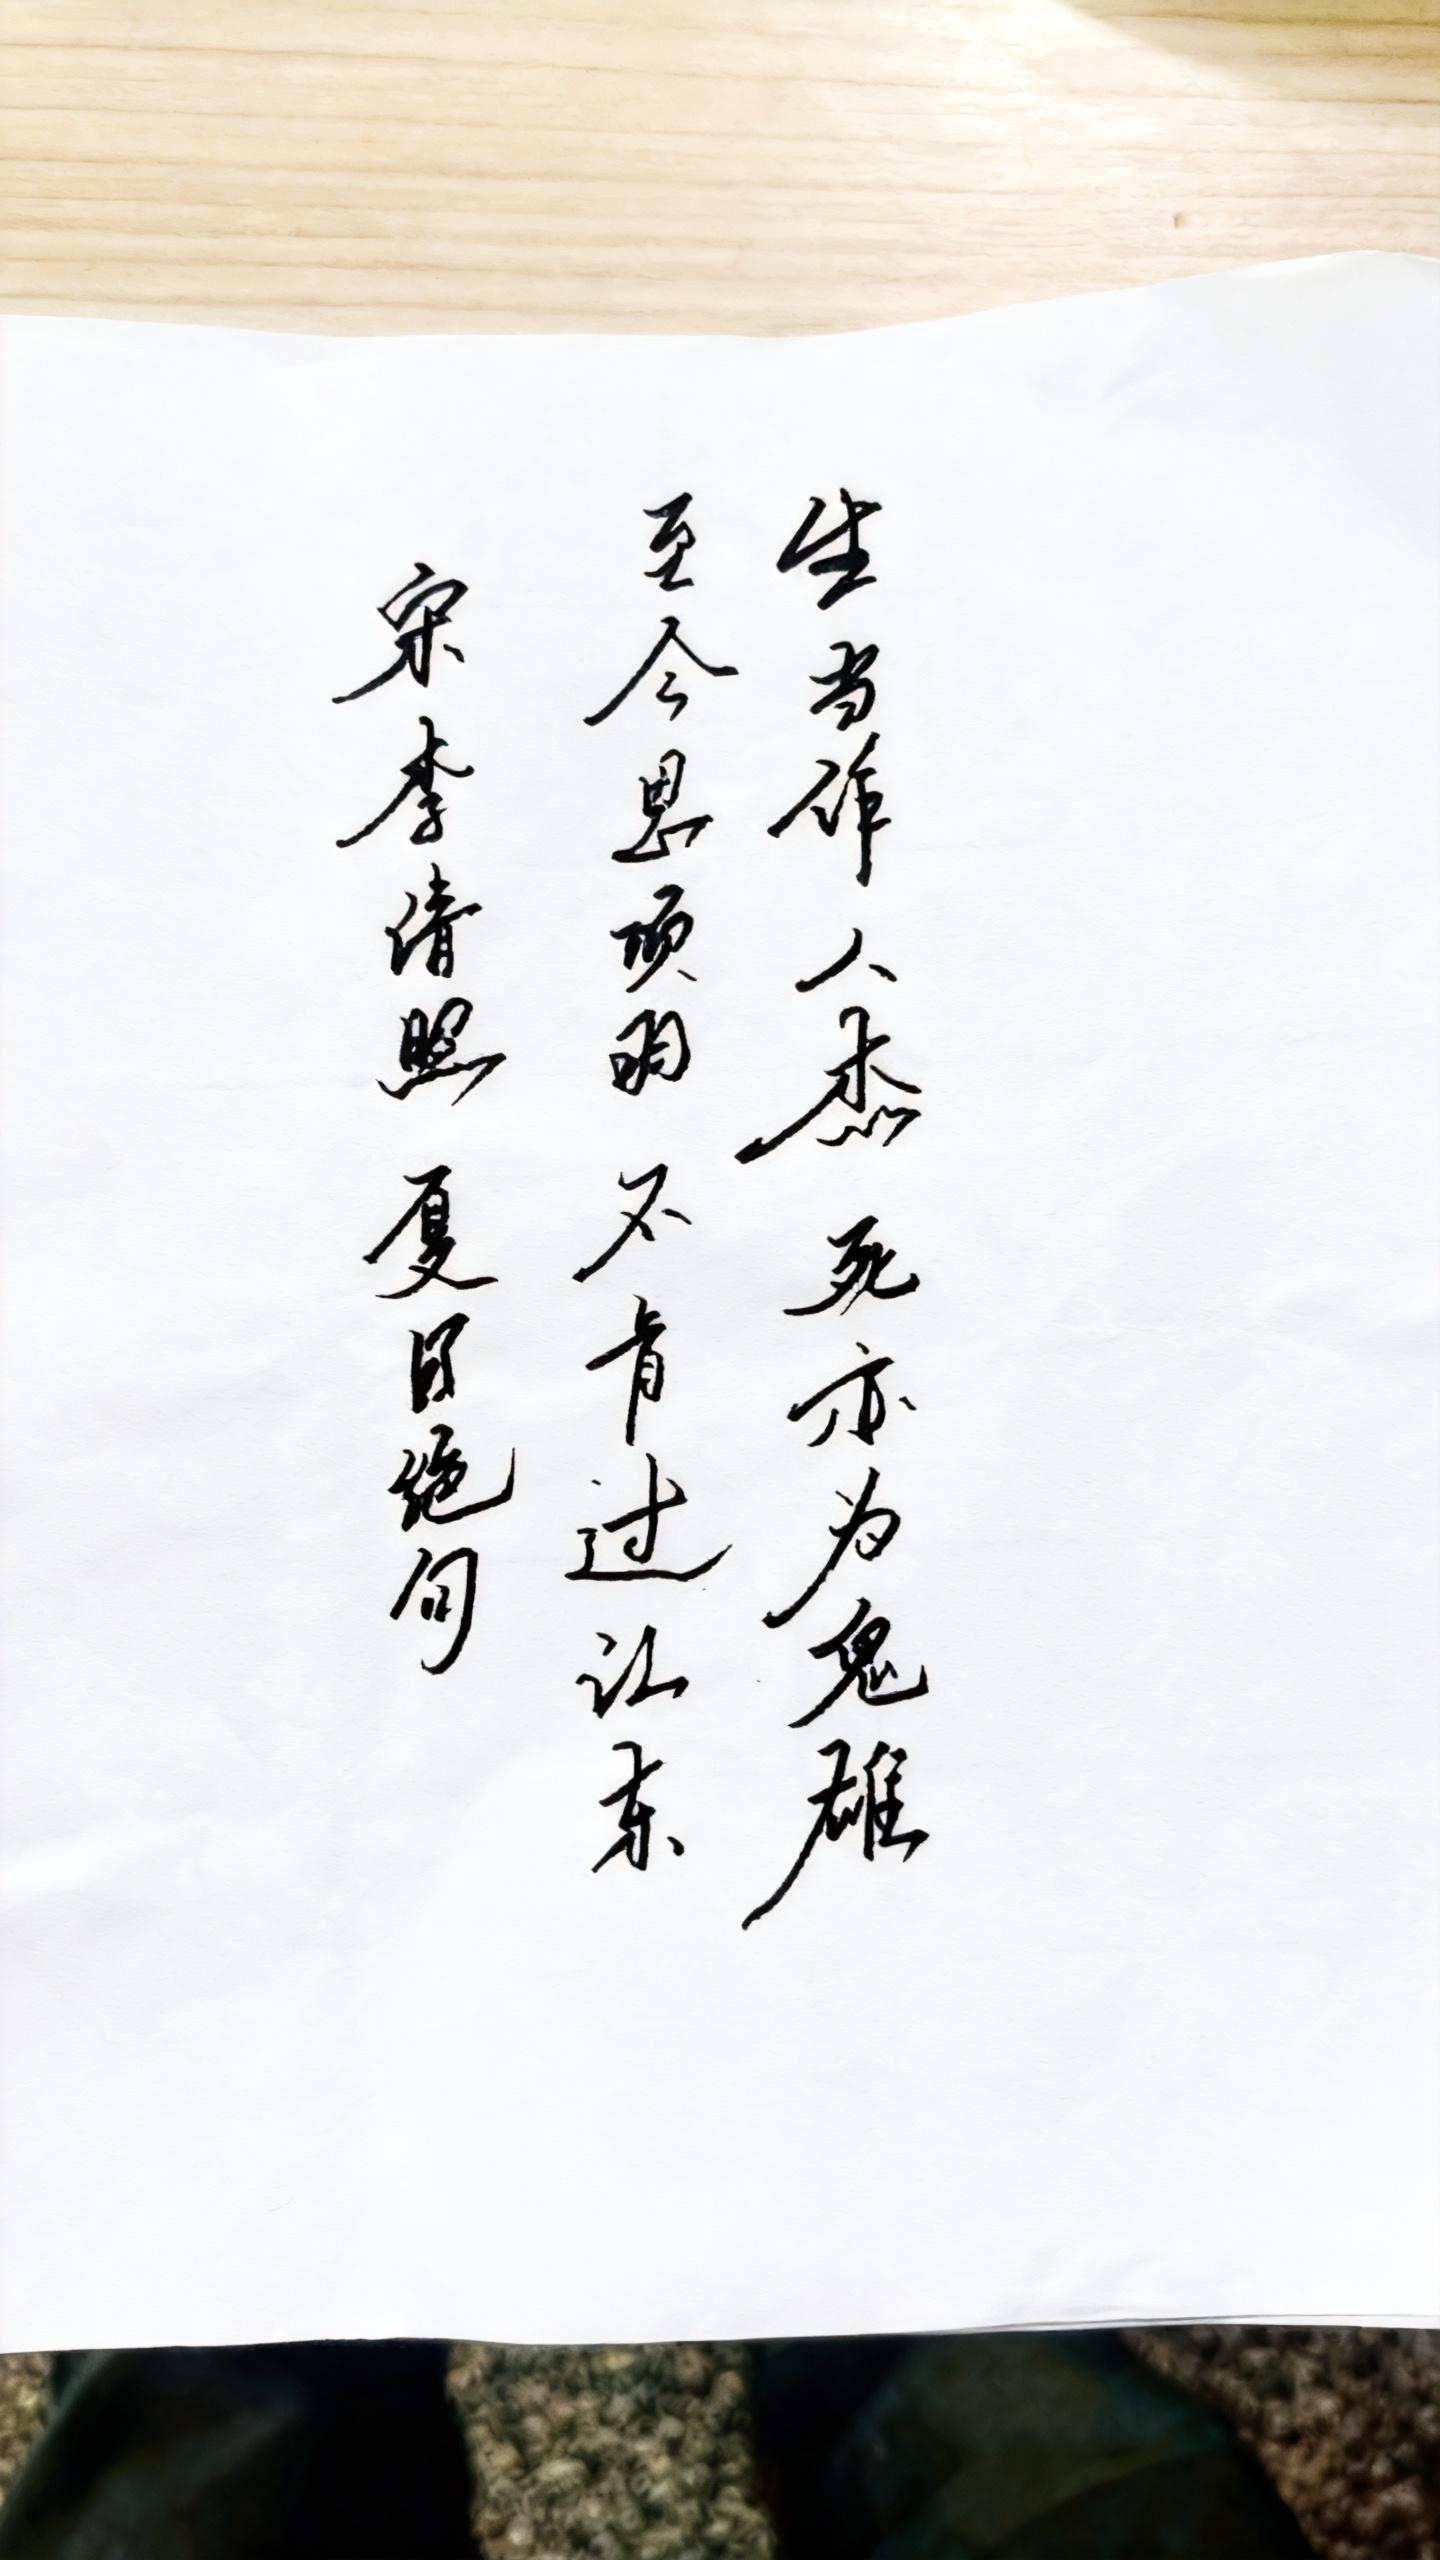 生当作人杰 死亦为鬼雄
至今思项羽 不肯过江东
宋李清照 夏日绝句